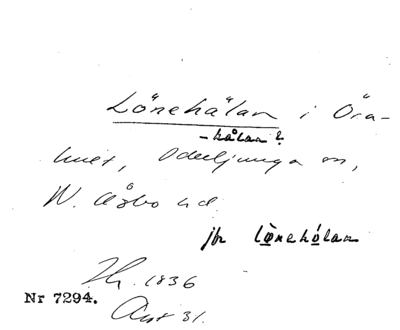 Lönehålan i Öra-
-hålan?
hult, Oderljunga sn,
N. Åsbo hd.
jfr lönehólan
Th. 1836
Nr 7294.
Avs 31.